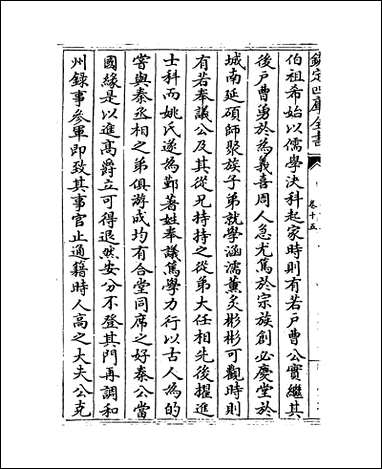 欽定四庫全書
卷十五
伯祖希始以儒學決科起家時則有若戸曹公實繼其
後戸曹勇於為義喜周人急尤篤於宗族創必慶堂於
城南延碩師聚族子弟就學涵濡薫炙彬彬可觀時則
有若奉議公及其從兄持持之從弟大任相先後擢進
士科而姚氏遂為鄞著姓奉議篤學力行以古人為的
嘗與秦丞相之弟俱游成均有合堂同席之好秦公當
國緣是以進髙爵立可得退然安分不登其門再調和
州録事參軍即致其事官止通籍時人髙之大夫公克